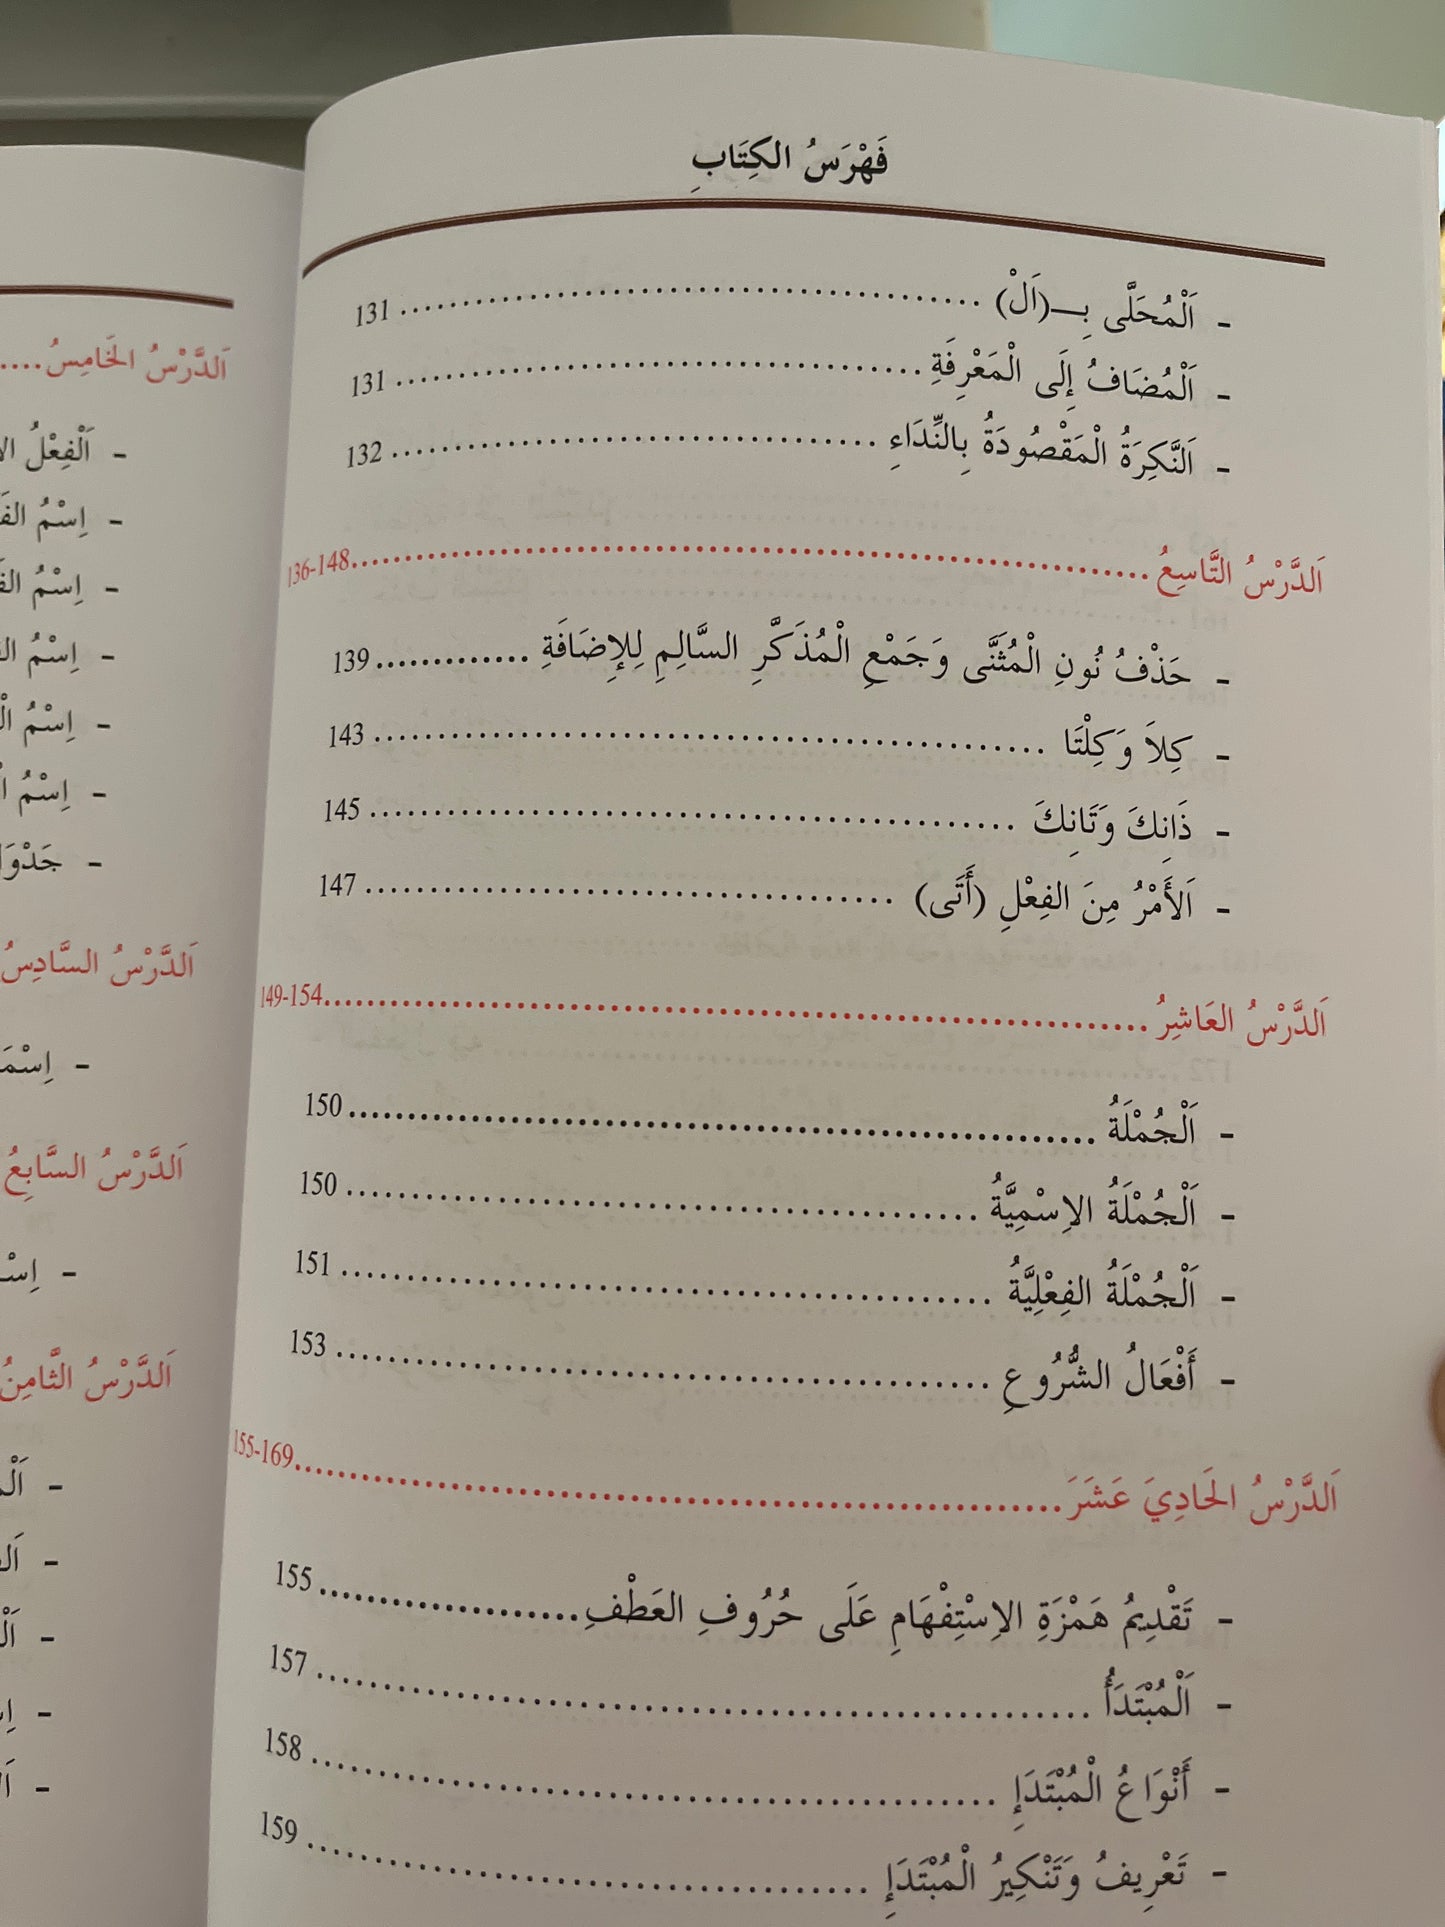 فَهْرَسُ الكِتَابِ
- اَلْمُحَلَّى بِـ(اَلْ) ........ 131
- اَلْمُضَافُ إِلَى الْمَعْرِفَةِ ........ 131
- اَلنَّكِرَةُ الْمَقْصُودَةُ بِالنِّدَاءِ ........ 132
اَلدَّرْسُ التَّاسِعُ ........ 136-148
- حَذْفُ نُونِ الْمُثَنَّى وَجَمْعِ الْمُذَكَّرِ السَّالِمِ لِلإِضَافَةِ ........ 139
- كِلاَ وَكِلْتَا ........ 143
- ذَانِكَ وَتَانِكَ ........ 145
- اَلأَمْرُ مِنَ الفِعْلِ (أَتَى) ........ 147
اَلدَّرْسُ العَاشِرُ ........ 149-154
- اَلْجُمْلَةُ ........ 150
- اَلْجُمْلَةُ الاِسْمِيَّةُ ........ 150
- اَلْجُمْلَةُ الفِعْلِيَّةُ ........ 151
- أَفْعَالُ الشُّرُوعِ ........ 153
اَلدَّرْسُ الحَادِيَ عَشَرَ ........ 155-169
- تَقْدِيمُ هَمْزَةِ الاِسْتِفْهَامِ عَلَى حُرُوفِ العَطْفِ ........ 155
- اَلْمُبْتَدَأُ ........ 157
- أَنْوَاعُ الْمُبْتَدَإِ ........ 158
- تَعْرِيفُ وَتَنْكِيرُ الْمُبْتَدَإِ ........ 159
اَلدَّرْسُ الخَامِسُ ....
- اَلْفِعْلُ
- اِسْمُ
- اِسْمُ
- اِسْمُ
- اِسْمُ
- اِسْمُ
اَلدَّرْسُ السَّادِسُ
اَلدَّرْسُ السَّابِعُ
اَلدَّرْسُ الثَّامِنُ